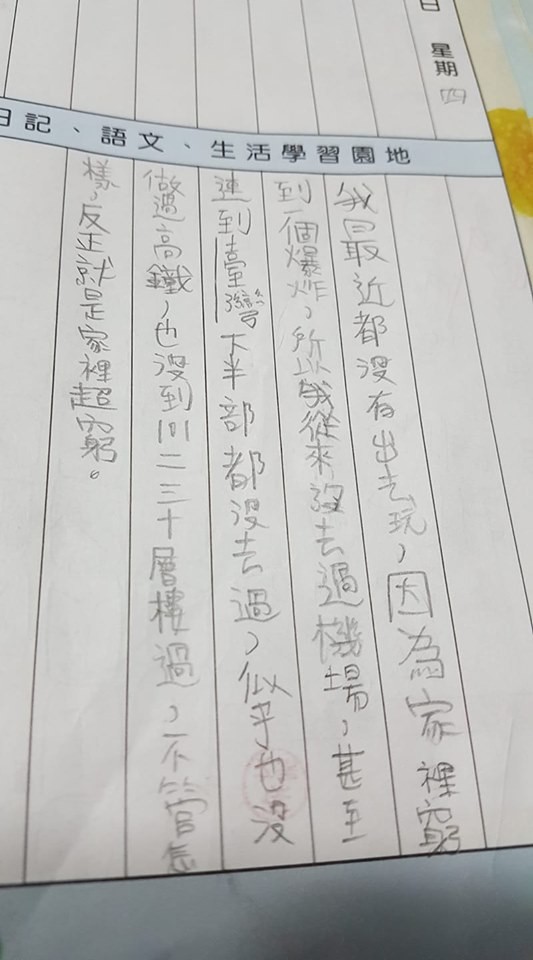 日 星期 四
日記、語文、生活學習園地
我最近都沒有出去玩，因為家裡窮
到一個爆炸，所以我從來沒去過機場，甚至
連到臺灣下半部都沒去過，似乎也沒
做過高鐵，也沒到二三十層樓過，不管怎
樣，反正就是家裡超窮。